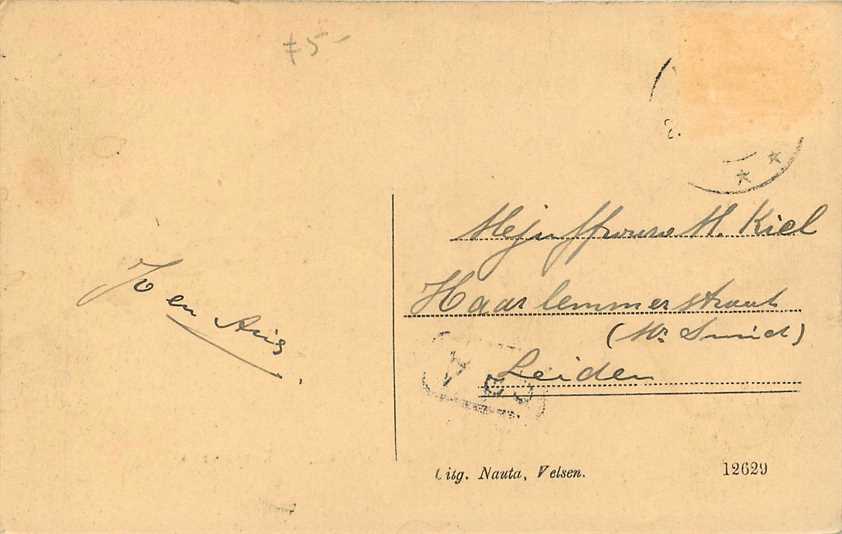 75-
Jo en Arie
Mejuffrouw M. Kiel
Haarlemmerstraat
(Mr. Smid)
Leiden
Uitg. Nauta, Velsen.
12629